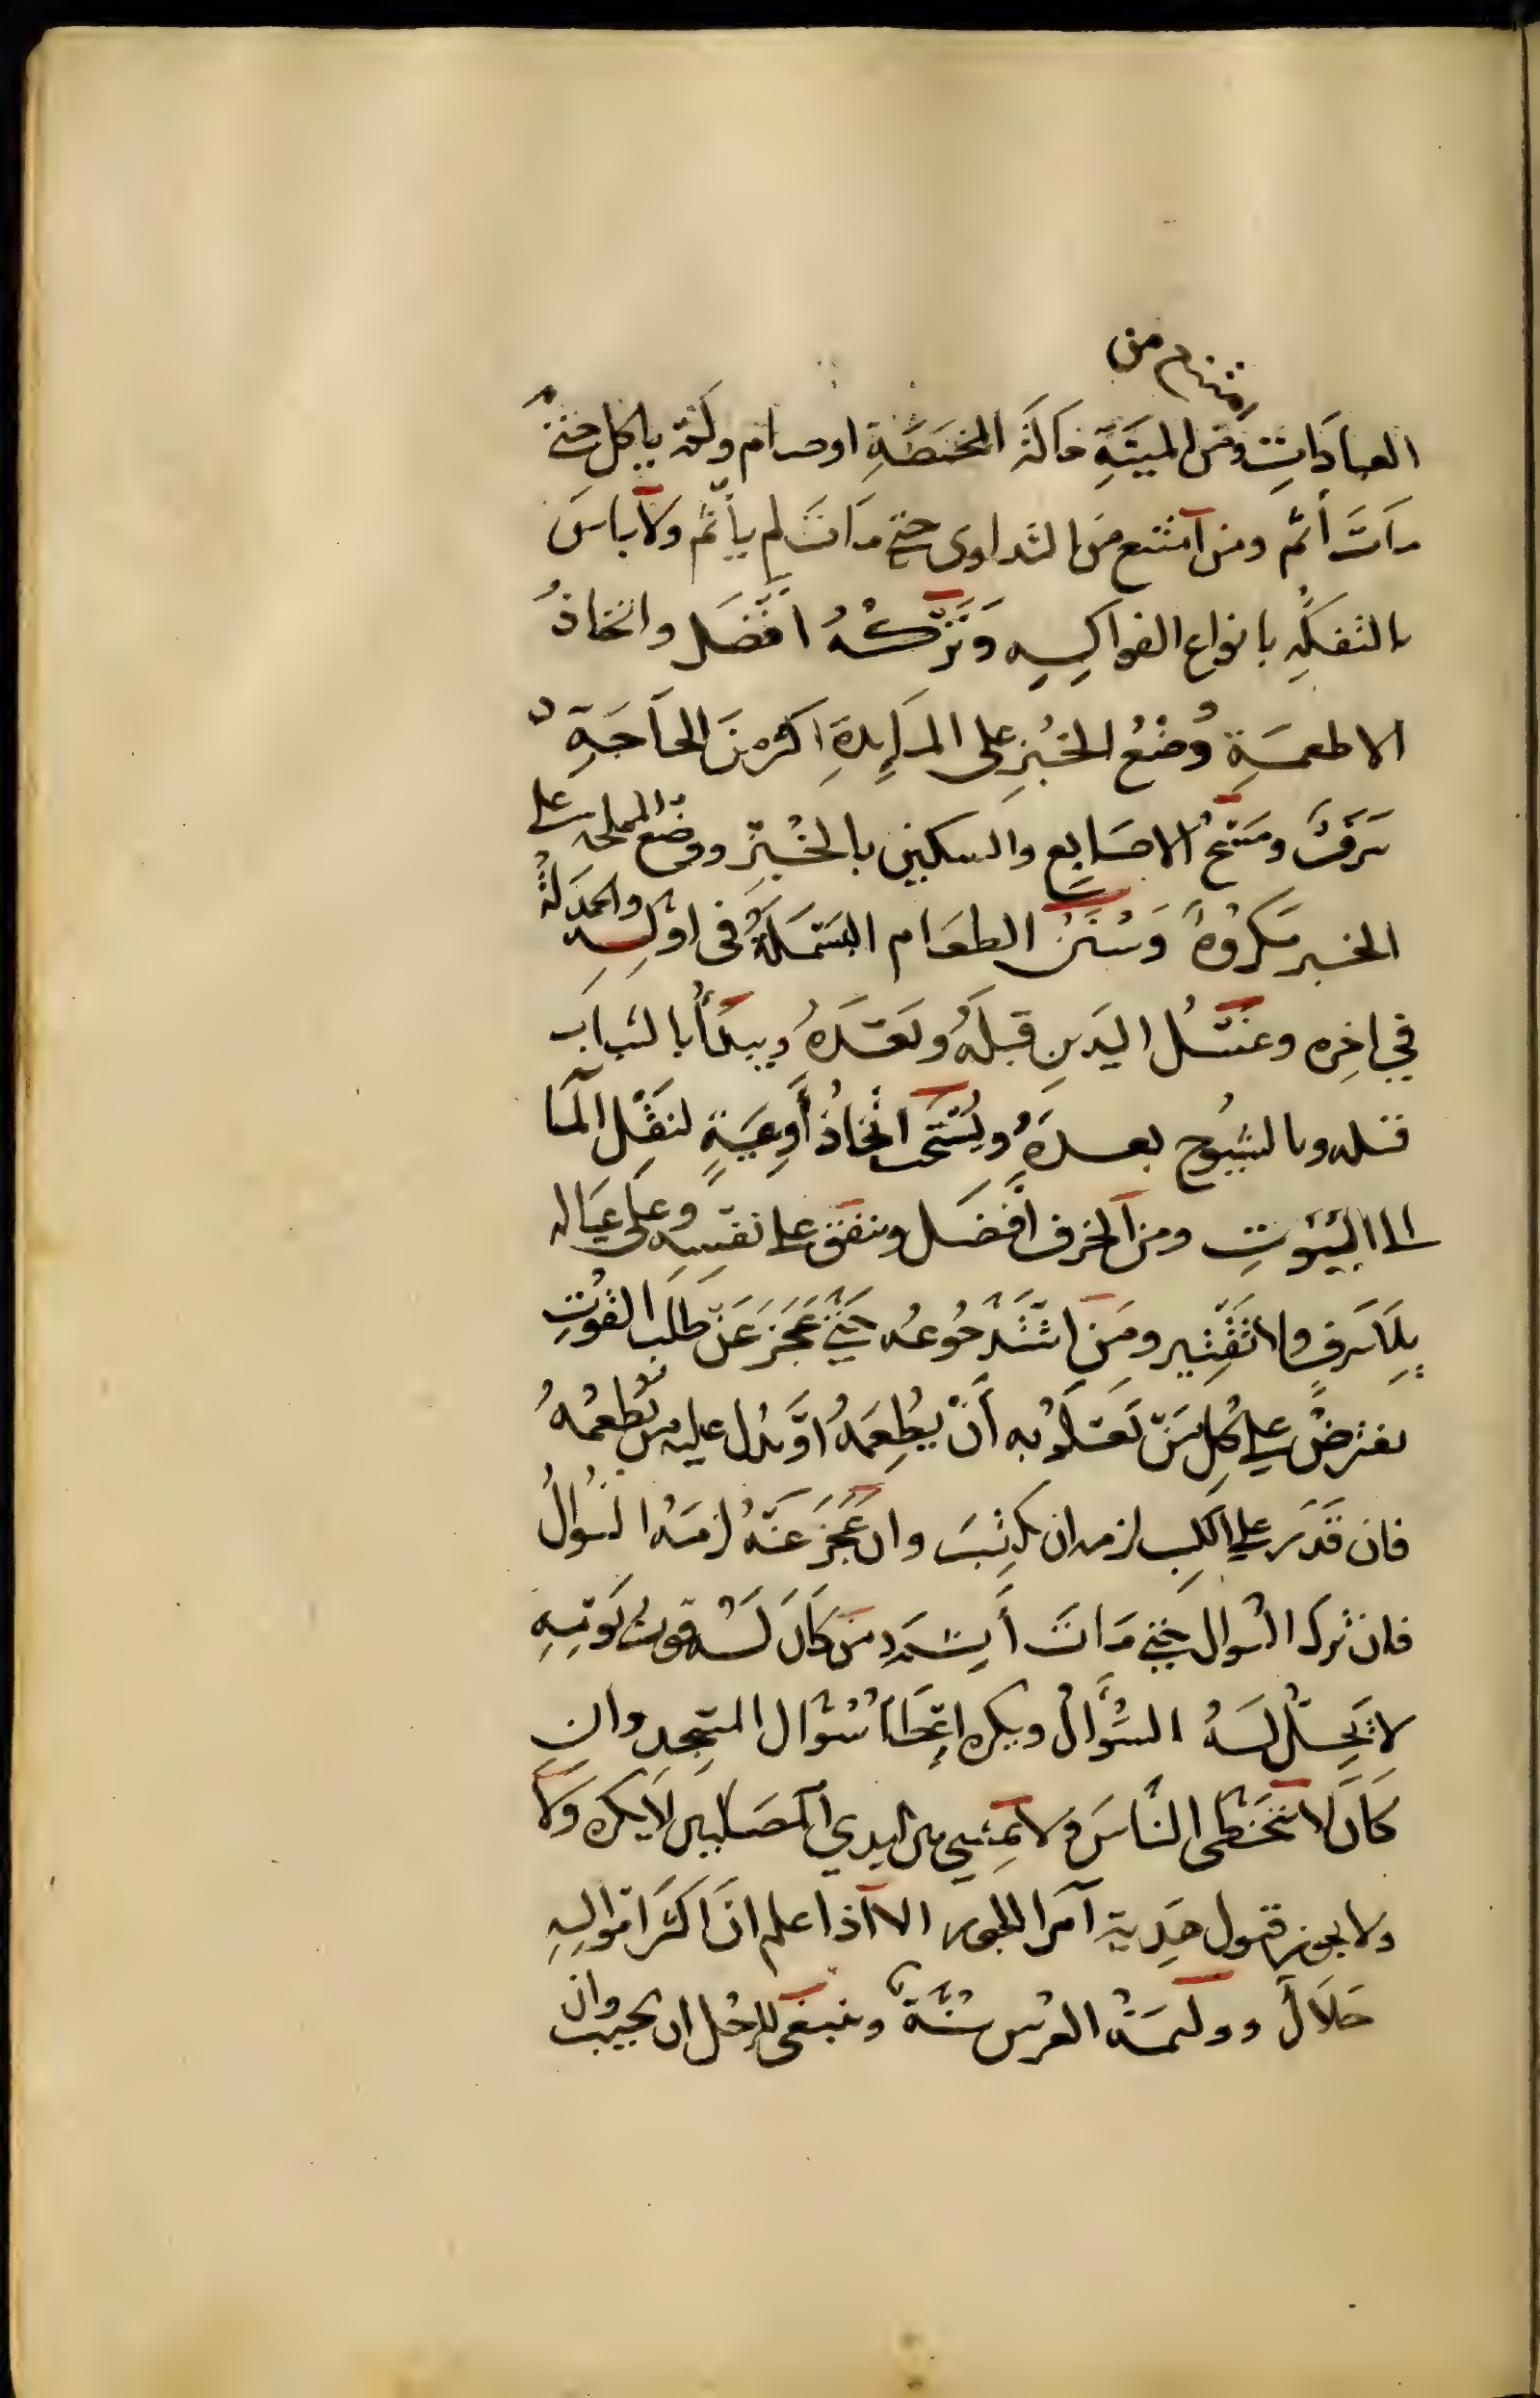 امتنع من
العبادات ومن الميتة حالة المخمصة او صام ولم ياكل حتى
مات أثم ومن امتنع من التداوى حتى مات لم يأثم ولا باس
بالتفكه بانواع الفواكه وتركه افضل واتخاذ
الاطعمة وضع الخبز على المايدة اكثر من الحاجة
سرف ومسح الاصابع والسكين بالخبز ووضع المملحة على
الخبز مكروه وسنن الطعام البسملة في اوله والحمدلة
في اخره وغسل اليدين قبله وبعده ويبدأ بالشباب
قبله وبالشيوخ بعده ويستحب اتخاذ أوعية لنقل الما
الى البيوت ومن الخزف افضل وينفق على نفسه وعلى عياله
بلا سرف ولا تقتير ومن اشتد جوعه حتى عجز عن طلب القوت
يفترض على كل من يعلم به أن يطعمه او يدل عليه من يطعمه
فان قدر على الكسب لزمه ان يكتسب وان عجز عنه لزمه السوال
فان ترك السوال حتى مات أثم ومن كان له قوت يومه
لا يحل له السوال ويكره اعطا سوال المسجد وان
كان لا يتخطى الناس ولا يمشي بين ايدي المصلين لا يكره ولا
ولا يجوز قبول هدية امرا الجور الا اذا علم ان اكثر امواله
حلال ووليمة العرس سنة وينبغى للرجل ان يجيب وان